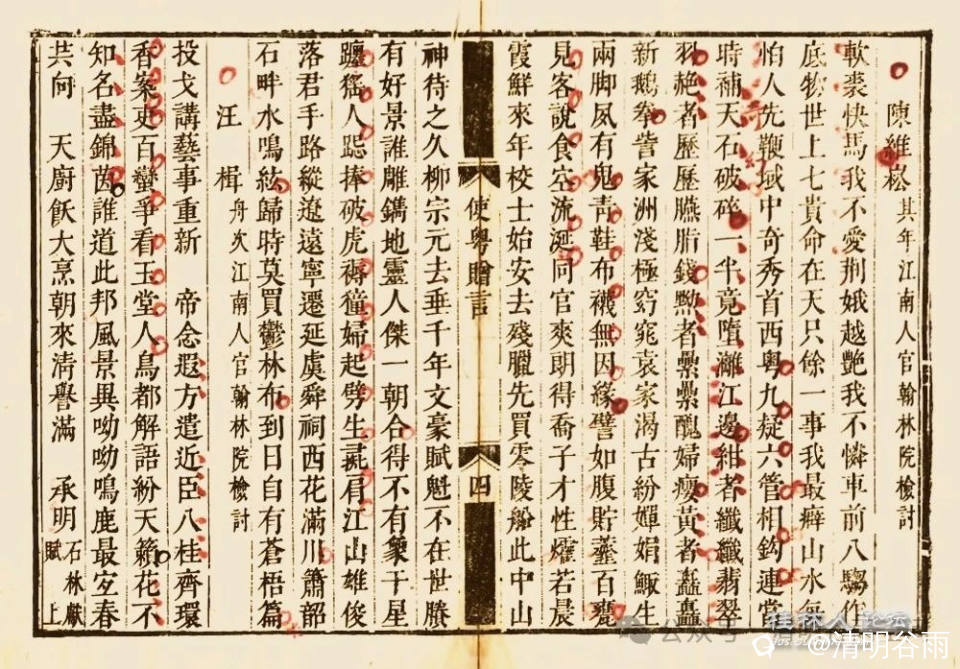 陳維崧 其年江南人官翰林院檢討
軟裘快馬我不愛荆娥越艷我不憐車前八騶作
底物世上七貴命在天只餘一事我最癖山水每
怕人先鞭域中奇秀首西粵九疑六管相鈎連當
時補天石破碎一半竟墮灕江邊紺者纖纖翡翠
羽赩者歷歷臙脂錢黝者纍纍醜婦癭黃者矗矗
新鵝拳訾家洲淺極窈窕袁家渴古紛嬋娟鯫生
兩脚夙有鬼青鞋布襪無因緣譬如腹貯虀百甕
見客說食空流涎同官爽朗得喬子才性燿若晨
霞鮮來年校士始安去殘臘先買零陵船此中山
使粵贈言 四
神待之久柳宗元去垂千年文豪賦魁不在世賸
有好景誰雕鐫地靈人傑一朝合得不有象干星
躔猺人跽捧破虎褥獞婦起劈生彘肩江山雄俊
落君手路縱遼遠寧遷延虞舜祠西花滿川簫韶
石畔水鳴絃歸時莫買鬱林布到日自有蒼梧篇
汪楫 舟次江南人官翰林院檢討
投戈講藝事重新 帝念遐方遣近臣八桂齊環
香案吏百蠻爭看玉堂人鳥都解語紛天籟花不
知名盡錦茵誰道此邦風景異呦呦鳴鹿最宐春
共向 天廚飫大烹朝來清譽滿 承明石林獻賦上
公众号
桂林人论坛
@清明谷雨